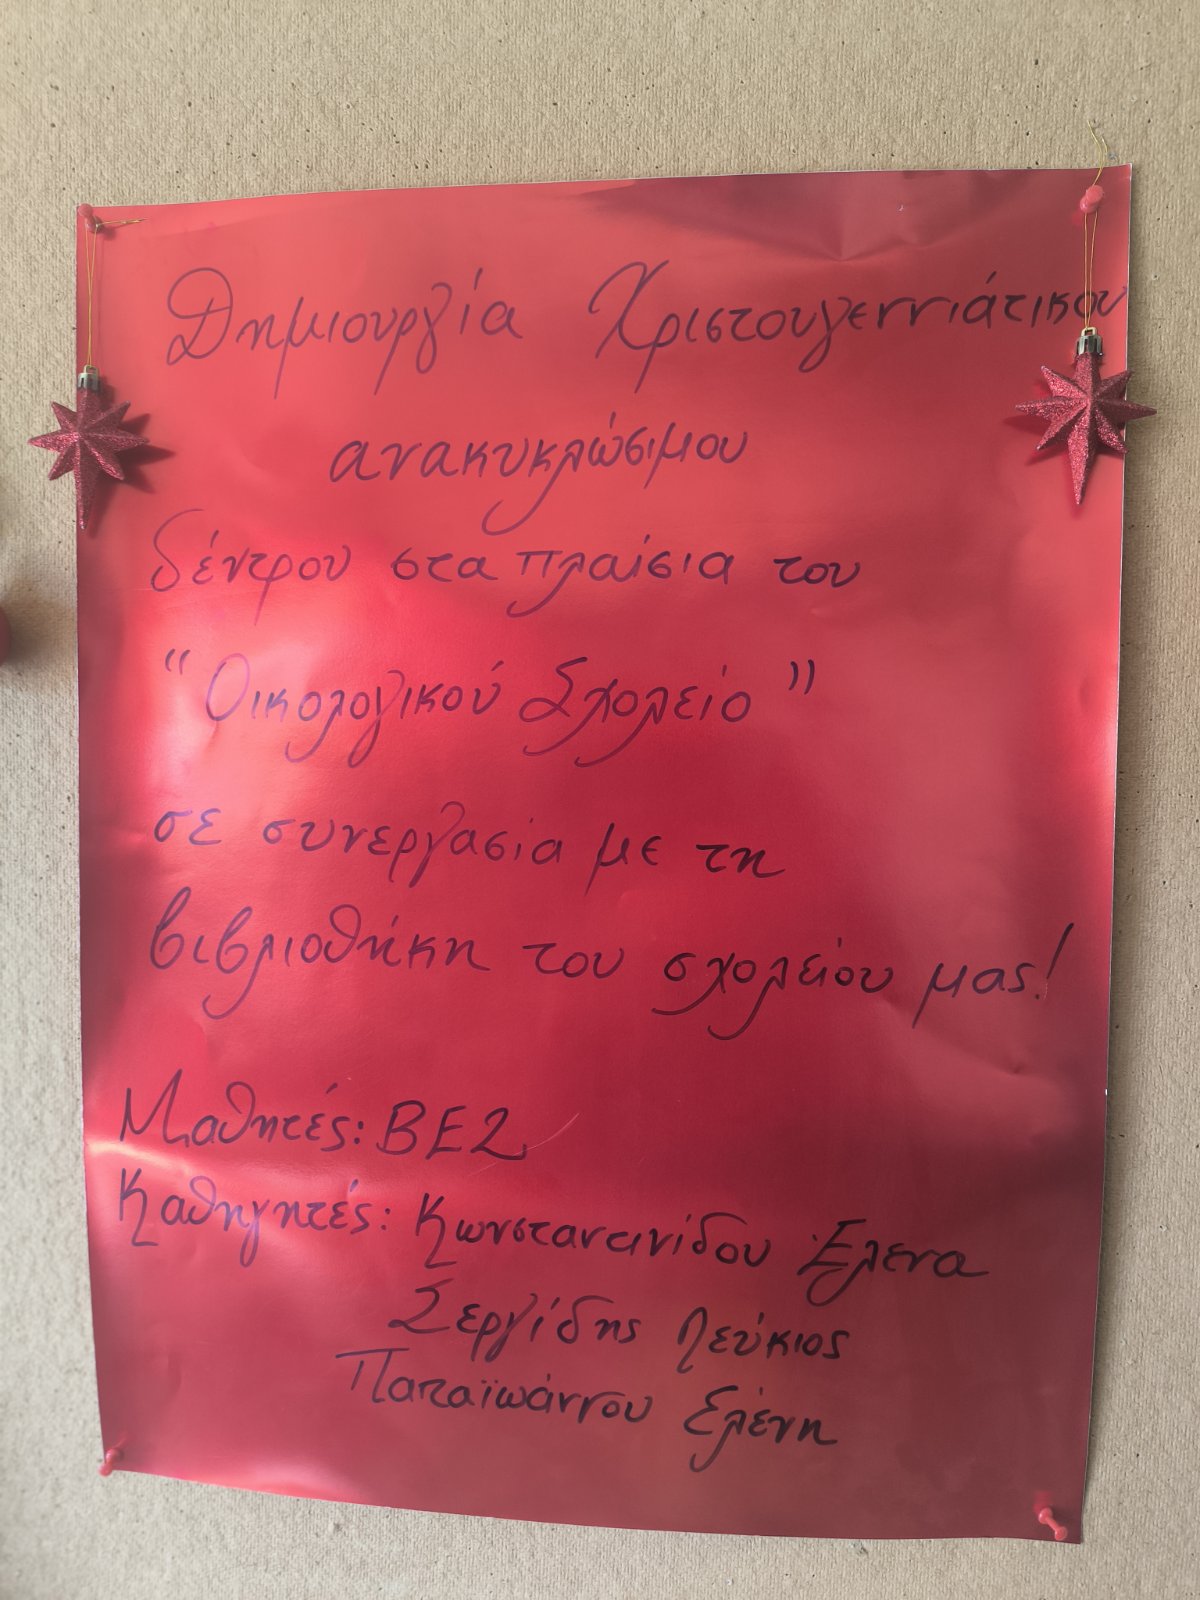 Δημιουργία Χριστουγεννιάτικου
ανακυκλώσιμου
δέντρου στα πλαίσια του
"Οικολογικού Σχολείο"
σε συνεργασία με τη
βιβλιοθήκη του σχολείου μας!
Μαθητές: ΒΕ2
Καθηγητές: Κωνσταντινίδου Έλενα
Σεργίδης Λεύκιος
Παπαϊωάννου Ελένη